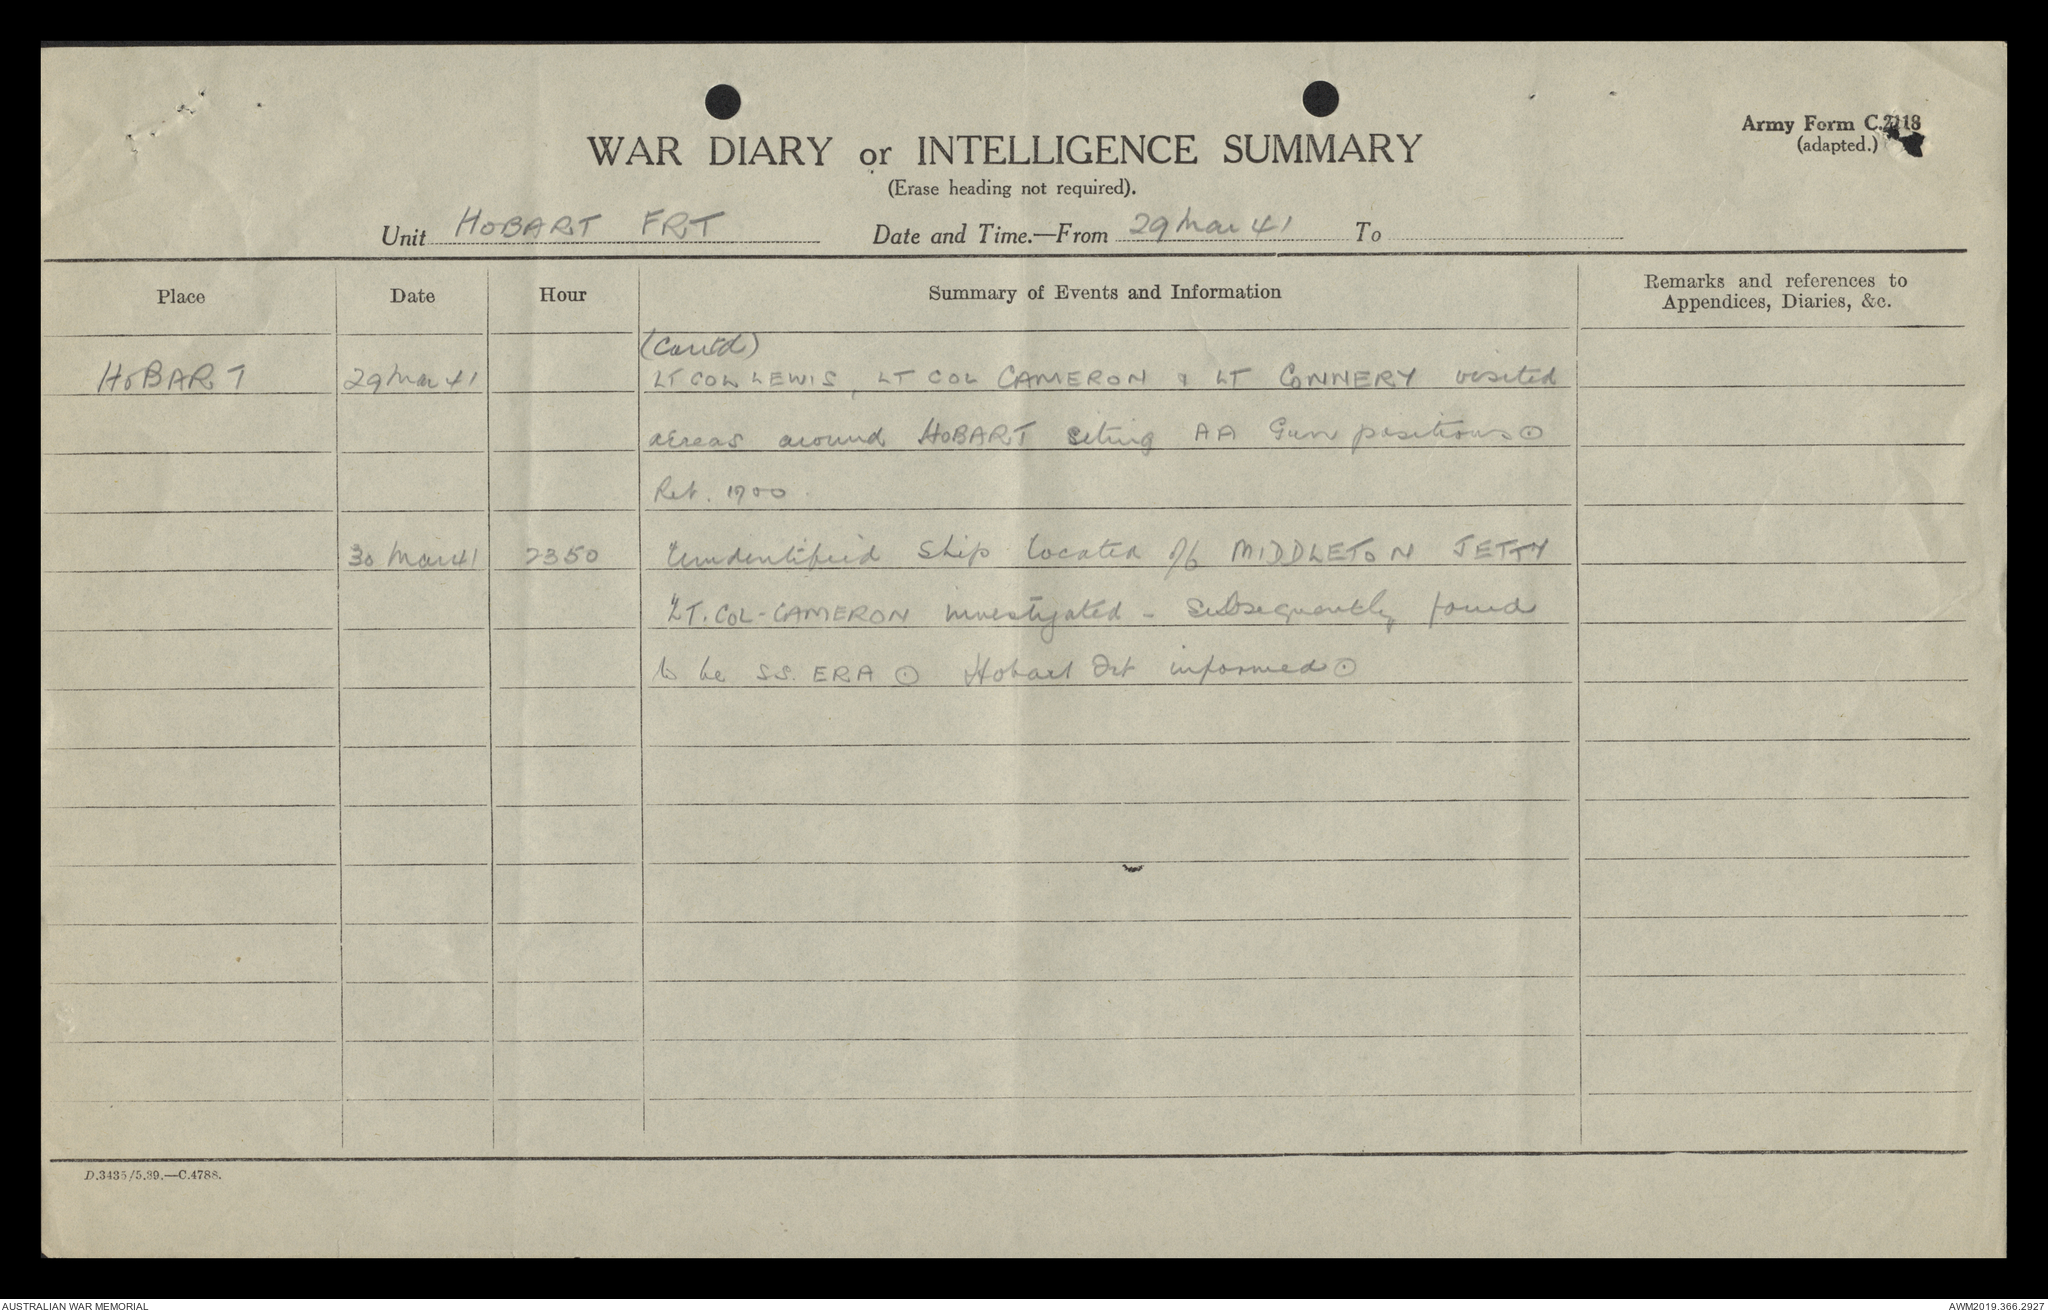 Army Form C.2118
(adapted.)
WAR DIARY or INTELLIGENCE SUMMARY
(Erase heading not required).
Unit HOBART FRT Date and Time.—From 29 Mar 41 To
Place Date Hour Summary of Events and Information Remarks and references to Appendices, Diaries, &c.
(Contd)
HOBART 29 Mar 41 LT COL LEWIS, LT COL CAMERON & LT CONNERY visited
areas around HOBART siting AA Gun positions⊙
Ret. 1700
30 Mar 41 2350 Unidentified ship located off MIDDLETON JETTY
LT. COL-CAMERON investigated - subsequently found
to be SS. ERA ⊙ Hobart informed⊙
D.3435/5.39.—C.4788.
AUSTRALIAN WAR MEMORIAL AWM2019.366.2927